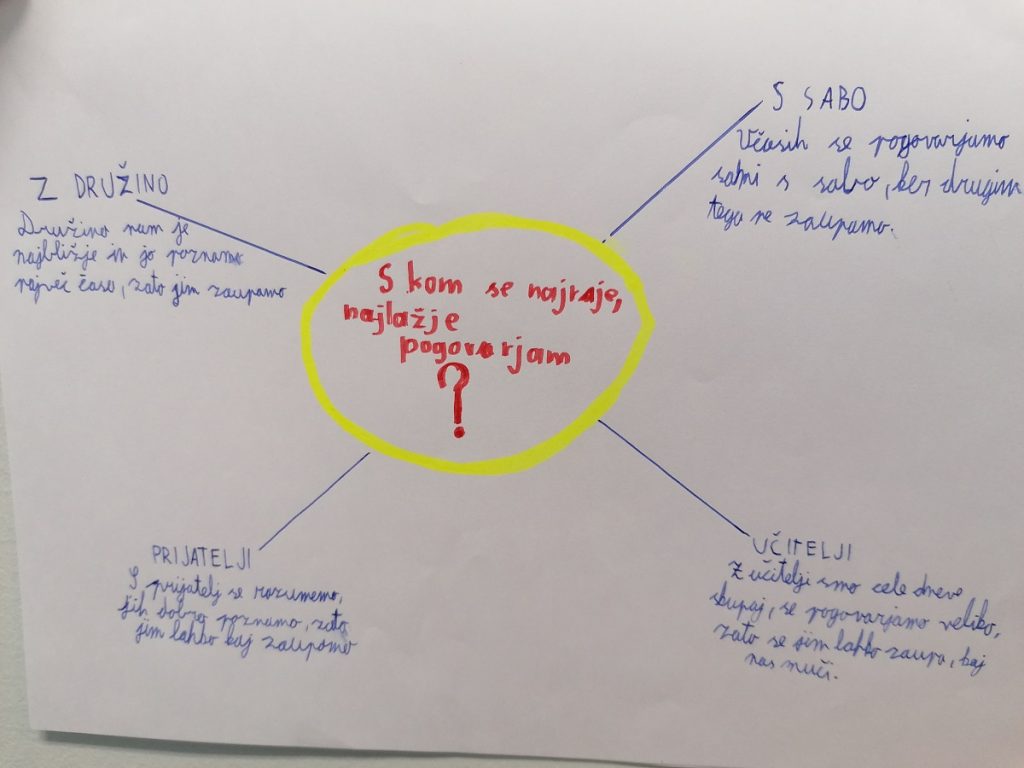 S kom se najraje,
najlažje
pogovarjam
?
Z DRUŽINO
Družino nam je
najbližje in jo poznamo
največ časa, zato jim zaupamo
S SABO
Včasih se pogovarjamo
sami s sabo, ker drugim
tega ne zaupamo.
PRIJATELJI
S prijatelj se razumemo,
jih dobro poznamo, zato
jim lahko kaj zaupamo
UČITELJI
Z učitelji smo cele dneve
skupaj, se pogovarjamo veliko,
zato se jim lahko zaupa, kaj
nas muči.